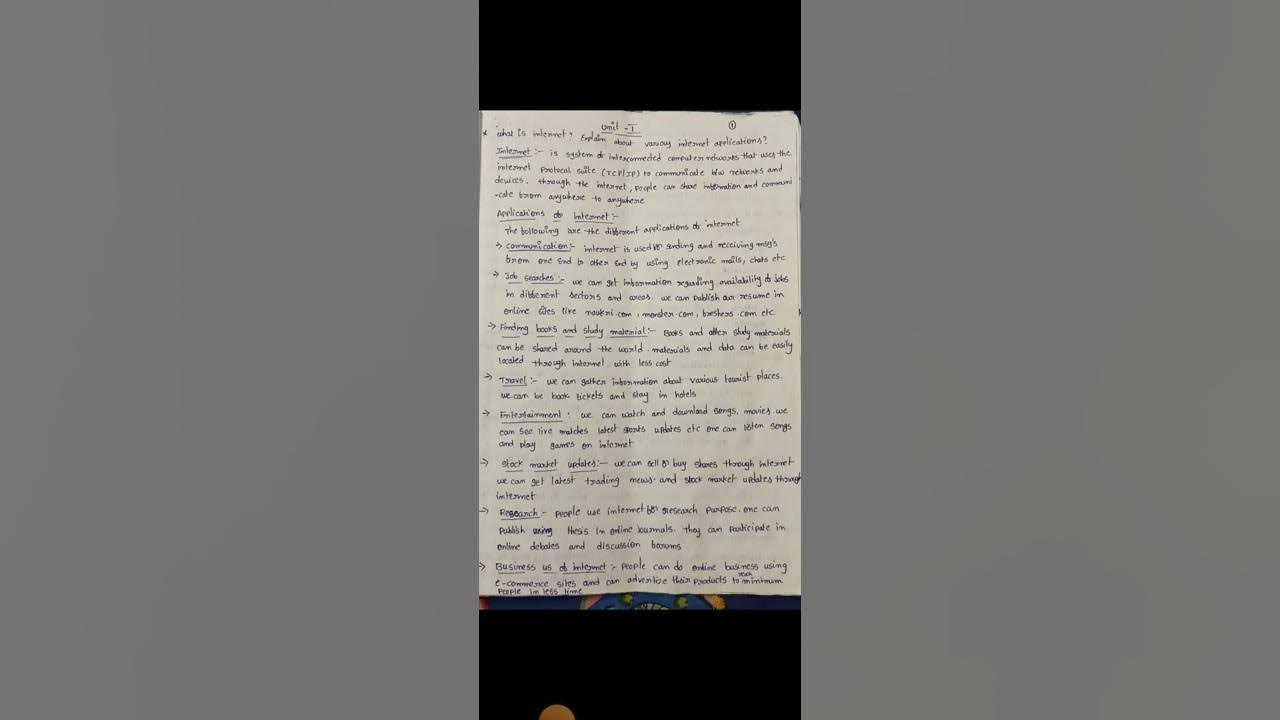 Unit - I
①
* What is internet? Explain about various internet applications?
Internet :- is system of interconnected computer networks that uses the
internet protocal suite (TCP/IP) to communicate b/w networks and
devices. through the internet, people can share information and communi
-cate from anywhere to anywhere
Applications of Internet :-
The following are the different applications of internet
→ communication :- internet is used for sending and receiving msg's
from one end to other end by using electronic mails, chats etc
→ Job searches :- we can get information regarding availability of jobs
in different sectors and areas. we can publish our resume in
online sites like naukri.com, monster.com, freshers.com etc
→ Finding books and study material :- Books and other study materials
can be shared around the world. materials and data can be easily
located through internet with less cost
→ Travel :- we can gather information about various tourist places.
we can be book tickets and stay in hotels
→ Entertainment : we can watch and download songs, movies. we
can see live matches latest sports updates etc one can listen songs
and play games on internet
→ Stock market updates :- we can sell or buy shares through internet
we can get latest trading news. and stock market updates through
internet
→ Research :- people use internet for research purpose. one can
publish using thesis in online journals. They can participate in
online debates and discussion forums
→ Business us of internet :- people can do online business using
e-commerce sites and can advertize their products to reach minimum
people in less time